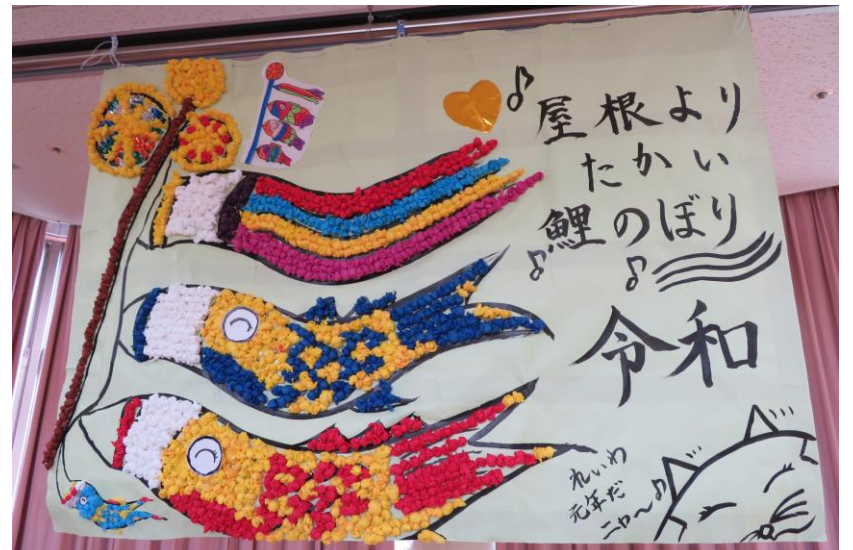 屋根より
たかい
鯉のぼり
令和
れいわ
元年だ
ニャ〜♪